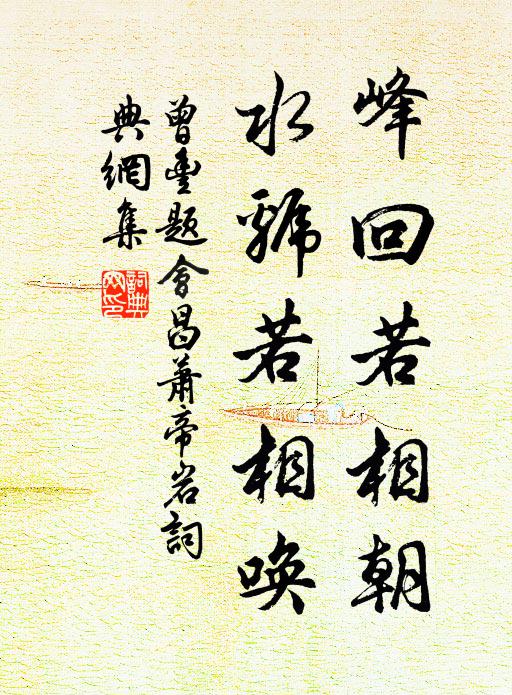 峰回若相朝
水號若相喚
曾豐題會昌蕭帝岩詞
典網集
詞典
网印